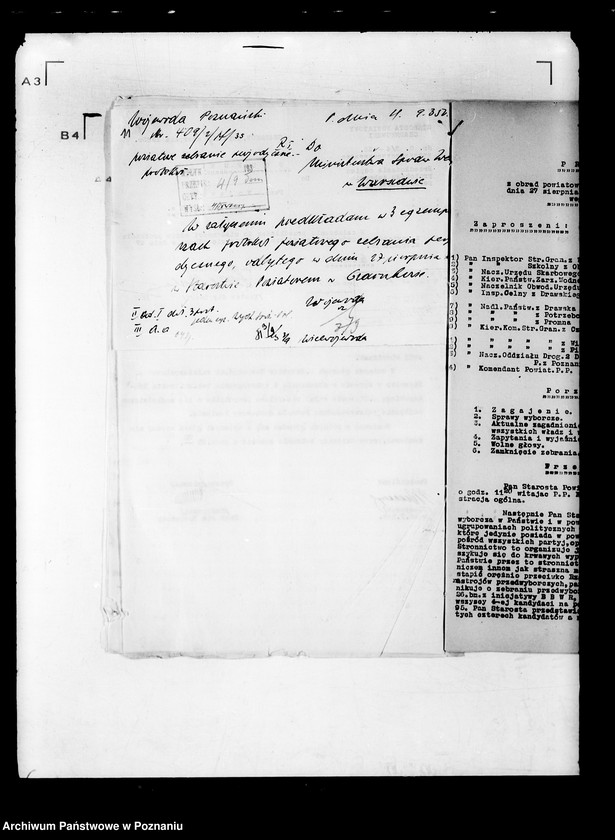 A3
B4
Wojewoda Poznański
P. dnia 4. 9. 35 r.
Nr. 409/2/35
Do
powiatowe zebranie periodyczne
protokół.
Ministerstwa Spraw
w Warszawie
4/9
W załączeniu przedkładam w 3 egzemp
rzach protokół powiatowego zebrania pe
dycznego, odbytego w dniu 27 sierpnia
w Starostwie Powiatowem w Czarnkowie.
Wojewoda
II ad. I
III a.a
Wicewojewoda
P
z obrad powiatow
dnia 27 sierpnia
we
Zaproszeni:
1) Pan Inspektor Str.Gran.z
" " Szkolny z
" Nacz.Urzędu Skarbowego
" Kier.Państw.Zarz.Wodne
" Naczelnik Obwod.Urzędu
" Insp.Celny z Drawskie
" Nadl.Państw.z Drawska
" " " z Potrzebo
" " " z Promna
" Kier.Kom.Str.Gran.z
" " " " z
" " " " z
" Nacz.Oddziału Drog.
P.z Poznan
" Komendant Powiat.P.P.
Porz
1. Zagajenie.
2. Sprawy wyborcze.
3. Aktualne zagadnieni
wszystkich władz i
4. Zapytania i wyjaśni
5. Wolne głosy.
6. Zamknięcie zebrania.
Prze
Pan Starosta Powi
o godz. 11 witając P.P.
stracja ogólna.
Następnie Pan Sta
wyborcza w Państwie i w pow
ugrupowaniach politycznych
które jedynie posiada w pow
pośród wszystkich partyj,
Stronnictwo to organizuje
szykuje się do krwawych wyp
Państwie przez to stronnict
niczem innem jak straszna
stąpić orężnie przeciwko
nastrojów przedwyborczych,
nikuje o zebraniu przedwybor
26.bm.z inicjatywy B B W R,
wszyscy 4-ej kandydaci na
95. Pan Starosta przedstawi
tych czterech kandydatów a
Archiwum Państwowe w Poznaniu